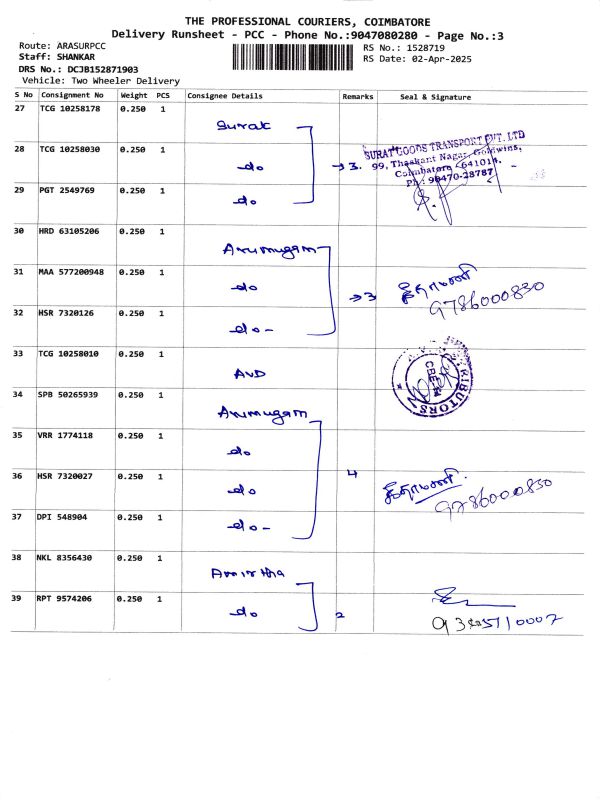 THE PROFESSIONAL COURIERS, COIMBATORE
Delivery Runsheet - PCC - Phone No.:9047080280 - Page No.:3
Route: ARASURPCC
RS No.: 1528719
Staff: SHANKAR
RS Date: 02-Apr-2025
DRS No.: DCJB152871903
Vehicle: Two Wheeler Delivery
S No Consignment No Weight PCS Consignee Details Remarks Seal & Signature
27 TCG 10258178 0.250 1 Surat
28 TCG 10258030 0.250 1 do →3.
SURAT GOODS TRANSPORT PVT. LTD
99, Thaakant Nagar, Goldwins,
Coimbatore - 641014.
Ph: 90470-28787
29 PGT 2549769 0.250 1 do
30 HRD 63105206 0.250 1 Arumugam
31 MAA 577200948 0.250 1 do →3
9786000830
32 HSR 7320126 0.250 1 do-
33 TCG 10258010 0.250 1 AVD
CBE
34 SPB 50265939 0.250 1 Arumugam
35 VRR 1774118 0.250 1 do
36 HSR 7320027 0.250 1 do 4
9786000830
37 DPI 548904 0.250 1 do-
38 NKL 8356430 0.250 1 Amirtha
39 RPT 9574206 0.250 1 do 2